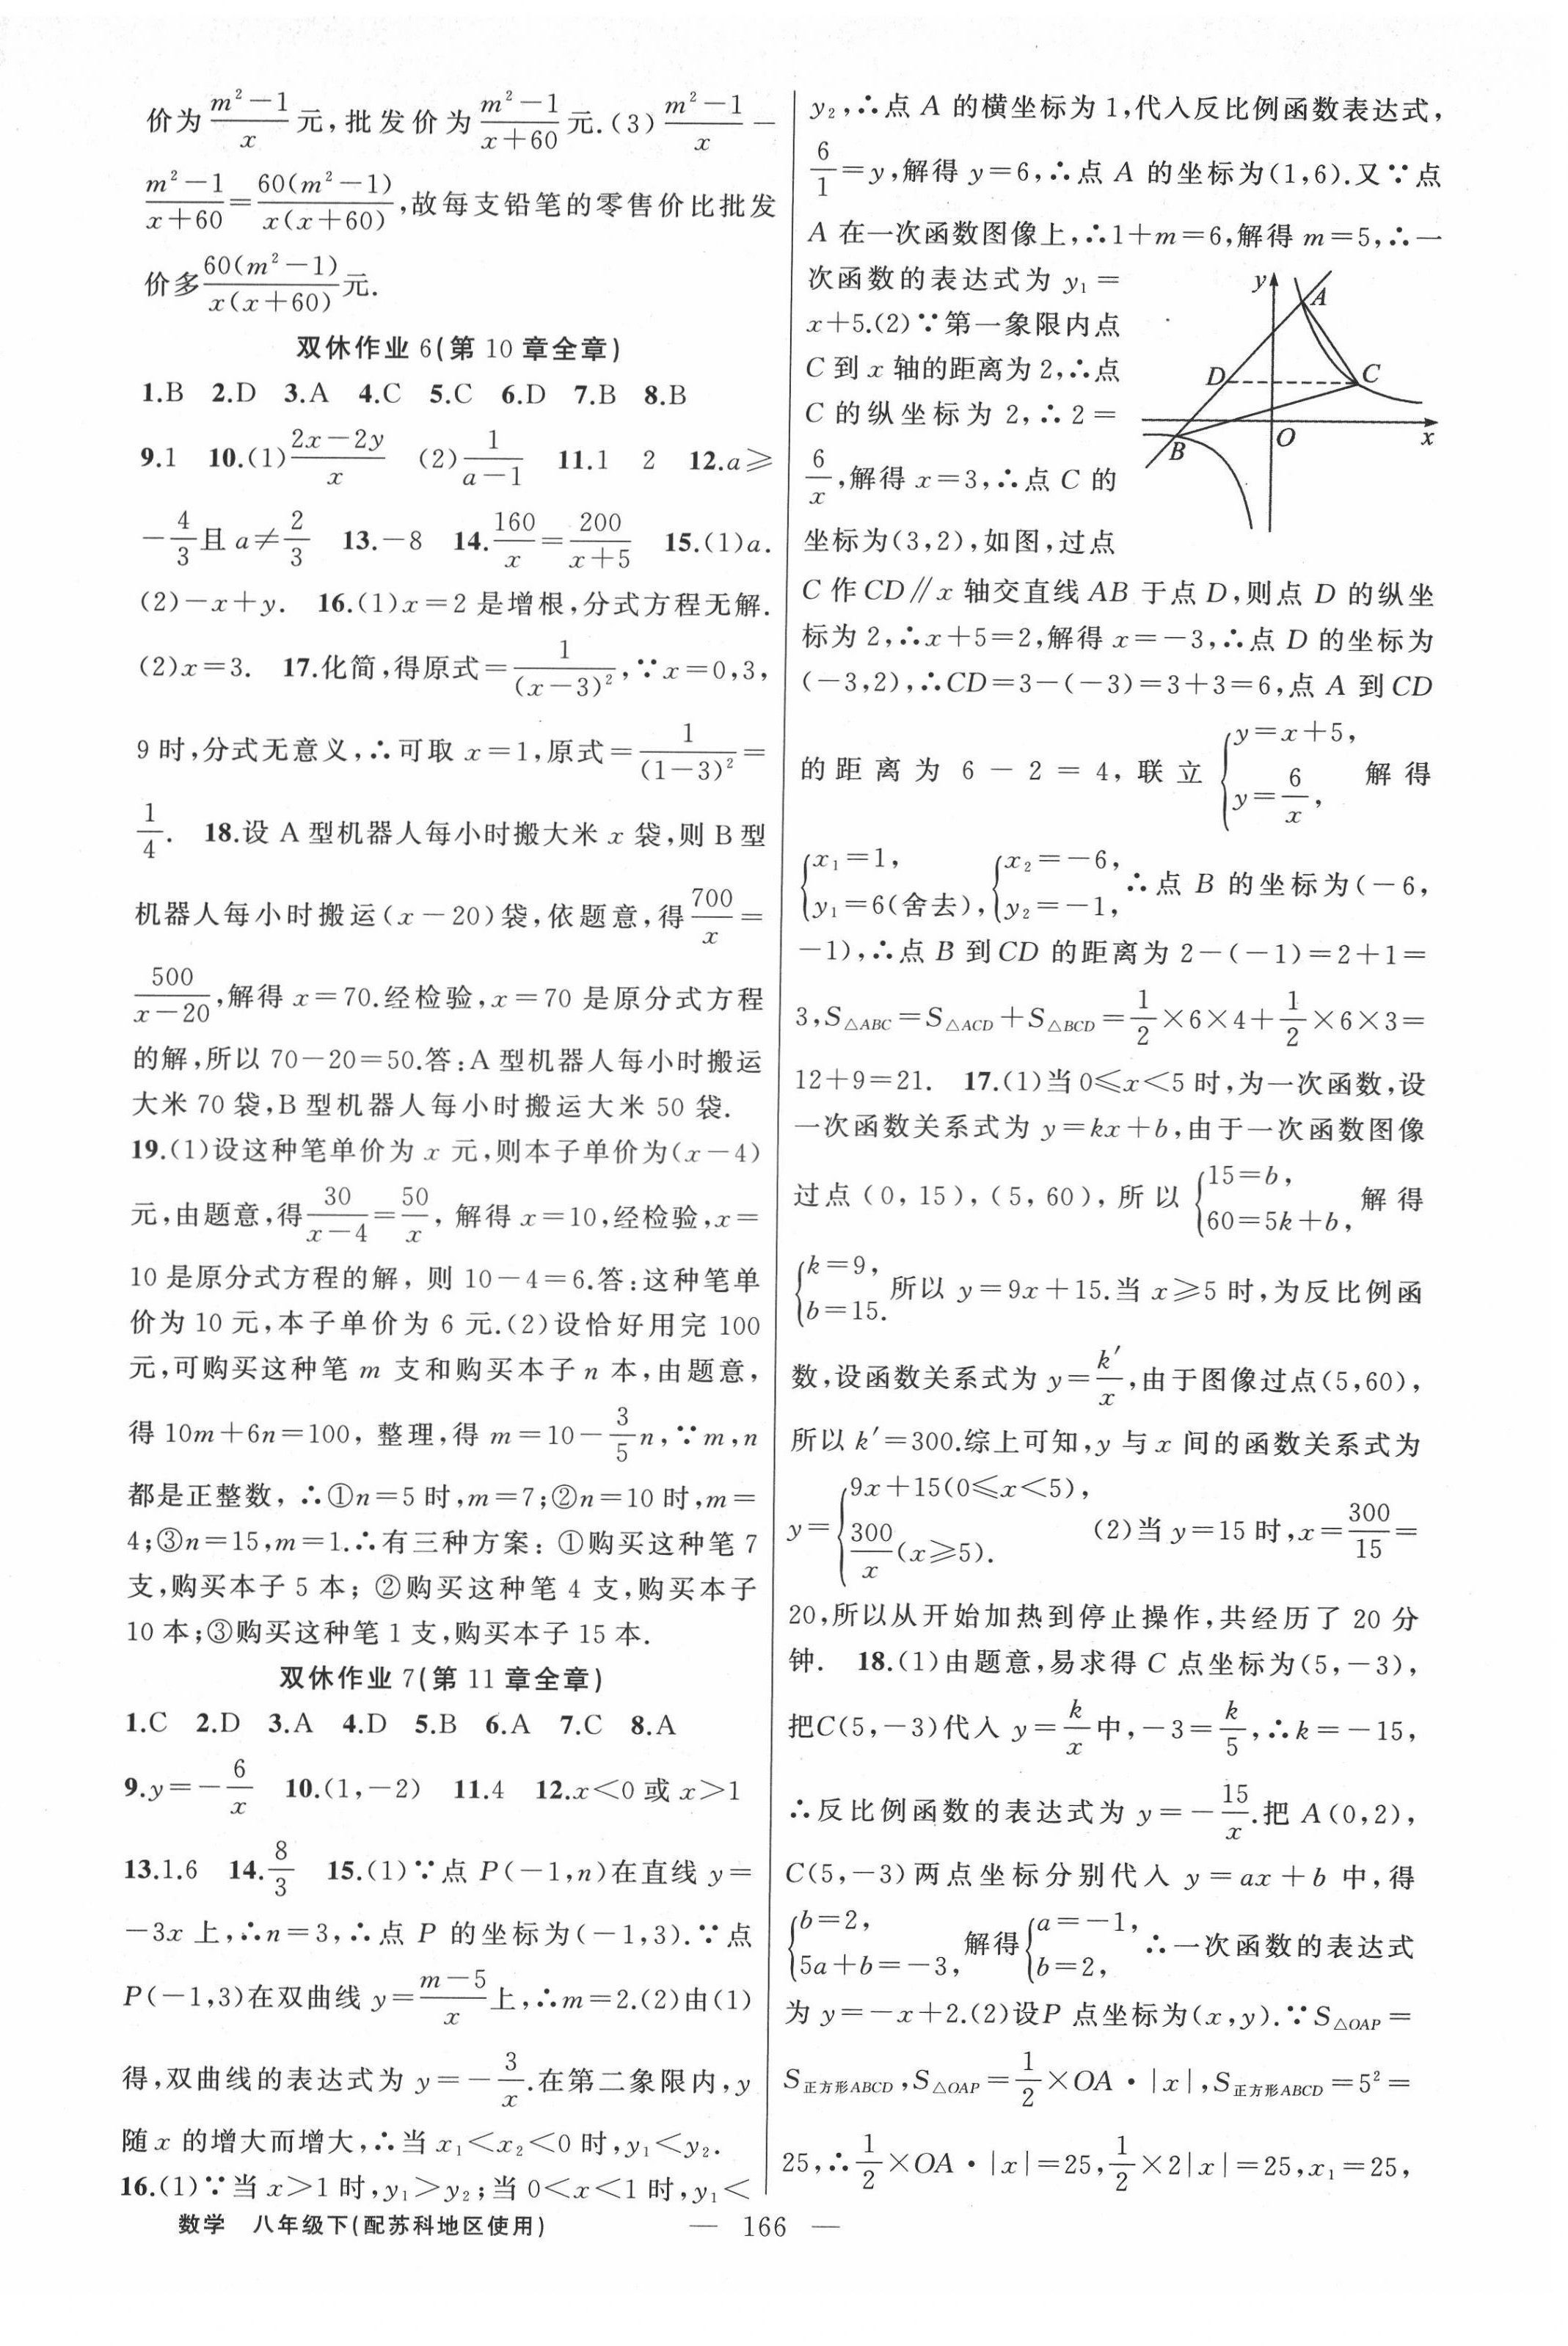 价为\frac{m²-1}{x}元,批发价为\frac{m²-1}{x+60}元.(3)\frac{m²-1}{x}-
\frac{m²-1}{x+60}=\frac{60(m²-1)}{x(x+60)},故每支铅笔的零售价比批发
价多\frac{60(m²-1)}{x(x+60)}元.
双休作业6(第10章全章)
1.B 2.D 3.A 4.C 5.C 6.D 7.B 8.B
9.1 10.(1)\frac{2x-2y}{x} (2)\frac{1}{a-1} 11.1 2 12.a≥
-\frac{4}{3}且a≠\frac{2}{3} 13.-8 14.\frac{160}{x}=\frac{200}{x+5} 15.(1)a.
(2)-x+y. 16.(1)x=2是增根,分式方程无解.
(2)x=3. 17.化简,得原式=\frac{1}{(x-3)²},∵x=0,3,
9时,分式无意义,∴可取x=1,原式=\frac{1}{(1-3)²}=
\frac{1}{4}. 18.设A型机器人每小时搬大米x袋,则B型
机器人每小时搬运(x-20)袋,依题意,得\frac{700}{x}=
\frac{500}{x-20},解得x=70.经检验,x=70是原分式方程
的解,所以70-20=50.答:A型机器人每小时搬运
大米70袋,B型机器人每小时搬运大米50袋.
19.(1)设这种笔单价为x元,则本子单价为(x-4)
元,由题意,得\frac{30}{x-4}=\frac{50}{x},解得x=10,经检验,x=
10是原分式方程的解,则10-4=6.答:这种笔单
价为10元,本子单价为6元.(2)设恰好用完100
元,可购买这种笔m支和购买本子n本,由题意,
得10m+6n=100,整理,得m=10-\frac{3}{5}n,∵m,n
都是正整数,∴①n=5时,m=7;②n=10时,m=
4;③n=15,m=1.∴有三种方案:①购买这种笔7
支,购买本子5本;②购买这种笔4支,购买本子
10本;③购买这种笔1支,购买本子15本.
双休作业7(第11章全章)
1.C 2.D 3.A 4.D 5.B 6.A 7.C 8.A
9.y=-\frac{6}{x} 10.(1,-2) 11.4 12.x<0或x>1
13.1.6 14.\frac{8}{3} 15.(1)∵点P(-1,n)在直线y=
-3x上,∴n=3,∴点P的坐标为(-1,3).∵点
P(-1,3)在双曲线y=\frac{m-5}{x}上,∴m=2.(2)由(1)
得,双曲线的表达式为y=-\frac{3}{x}.在第二象限内,y
随x的增大而增大,∴当x₁<x₂<0时,y₁<y₂.
16.(1)∵当x>1时,y₁>y₂;当0<x<1时,y₁<
y₂,∴点A的横坐标为1,代入反比例函数表达式,
\frac{6}{1}=y,解得y=6,∴点A的坐标为(1,6).又∵点
A在一次函数图像上,∴1+m=6,解得m=5,∴一
次函数的表达式为y₁=
x+5.(2)∵第一象限内点
C到x轴的距离为2,∴点
C的纵坐标为2,∴2=
\frac{6}{x},解得x=3,∴点C的
坐标为(3,2),如图,过点
y
A
D
C
B
O
x
C作CD∥x轴交直线AB于点D,则点D的纵坐
标为2,∴x+5=2,解得x=-3,∴点D的坐标为
(-3,2),∴CD=3-(-3)=3+3=6,点A到CD
的距离为6-2=4,联立{y=x+5, y=\frac{6}{x}, 解得
{x₁=1, y₁=6(舍去),{x₂=-6, y₂=-1,∴点B的坐标为(-6,
-1),∴点B到CD的距离为2-(-1)=2+1=
3,S△ABC=S△ACD+S△BCD=\frac{1}{2}×6×4+\frac{1}{2}×6×3=
12+9=21. 17.(1)当0≤x<5时,为一次函数,设
一次函数关系式为y=kx+b,由于一次函数图像
过点(0,15),(5,60),所以{15=b, 60=5k+b,解得
{k=9, b=15.所以y=9x+15.当x≥5时,为反比例函
数,设函数关系式为y=\frac{k′}{x},由于图像过点(5,60),
所以k′=300.综上可知,y与x间的函数关系式为
y={9x+15(0≤x<5), \frac{300}{x}(x≥5). (2)当y=15时,x=\frac{300}{15}=
20,所以从开始加热到停止操作,共经历了20分
钟. 18.(1)由题意,易求得C点坐标为(5,-3),
把C(5,-3)代入y=\frac{k}{x}中,-3=\frac{k}{5},∴k=-15,
∴反比例函数的表达式为y=-\frac{15}{x}.把A(0,2),
C(5,-3)两点坐标分别代入y=ax+b中,得
{b=2, 5a+b=-3,解得{a=-1, b=2,∴一次函数的表达式
为y=-x+2.(2)设P点坐标为(x,y).∵S△OAP=
S正方形ABCD,S△OAP=\frac{1}{2}×OA·|x|,S正方形ABCD=5²=
25,∴\frac{1}{2}×OA·|x|=25,\frac{1}{2}×2|x|=25,x₁=25,
数学 八年级下(配苏科地区使用) — 166 —